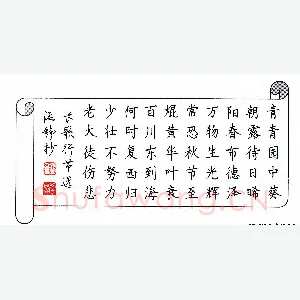 青青园中葵
朝露待日晞
阳春布德泽
万物生光辉
常恐秋节至
焜黄华叶衰
百川东到海
何时复西归
少壮不努力
老大徒伤悲
长歌行节选
静抄
Shufawang.CN